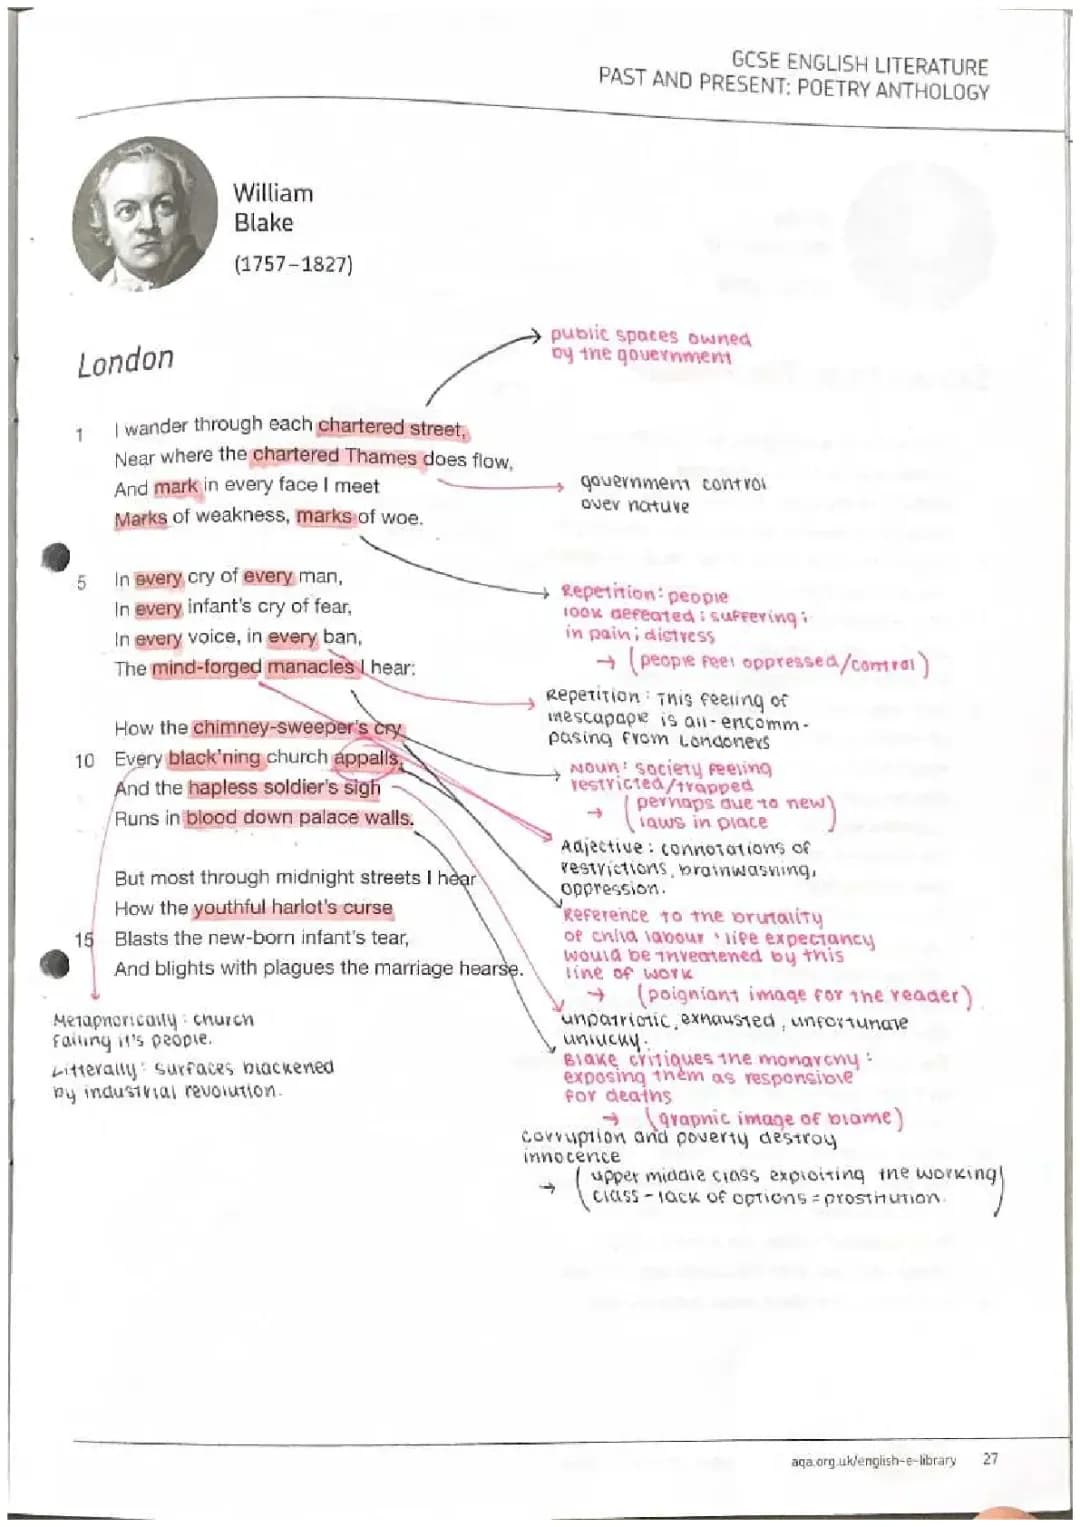 GCSE ENGLISH LITERATURE
PAST AND PRESENT: POETRY ANTHOLOGY
William
Blake
(1757–1827)
London
public spaces owned
by the government
1 I wander through each chartered street,
Near where the chartered Thames does flow,
And mark in every face I meet
Marks of weakness, marks of woe.
government control
over nature
5 In every cry of every man,
In every infant's cry of fear,
In every voice, in every ban,
The mind-forged manacles I hear:
Repetition: people
look defeated; suffering;
in pain; distress
→ (people feel oppressed/control)
Repetition: This feeling of
inescapaple is all-encomm-
pasing from Londoners
How the chimney-sweeper's cry
10 Every black'ning church appalls,
And the hapless soldier's sigh
Runs in blood down palace walls.
Noun: society feeling
restricted/trapped
→ (perhaps due to new
laws in place)
Adjective: connotations of
restrictions, brainwashing,
oppression.
But most through midnight streets I hear
How the youthful harlot's curse
15 Blasts the new-born infant's tear,
And blights with plagues the marriage hearse.
Reference to the brutality
of child labour life expectancy
would be threatened by this
line of work
→ (poigniant image for the reader)
Metaphorically: church
failing it's people.
Litterally: surfaces blackened
by industrial revolution.
unpatriotic, exhausted, unfortunate
unlucky.
Blake critiques the monarchy:
exposing them as responsible
for deaths
→ (graphic image of blame)
corruption and poverty destroy
innocence
→ (upper middle class exploiting the working
class - lack of options = prostitution.)
aqa.org.uk/english-e-library 27